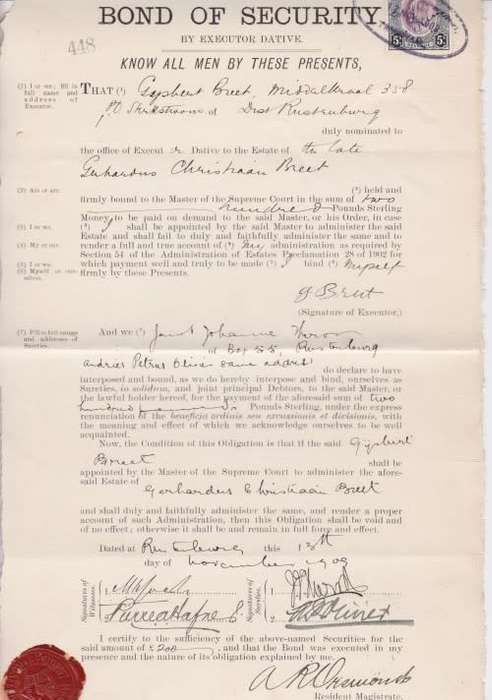 BOND OF SECURITY
BY EXECUTOR DATIVE.
448
5s 5s
KNOW ALL MEN BY THESE PRESENTS,
(1) I or we; fill in full name and address of Executor.
THAT (1) Gysbert Breet, Middelkraal 358
P.O. of Dist Rustenburg
duly nominated to
the office of Execut or Dative to the Estate of the late
Gerhardus Christiaan Breet
(2) Am or are.
(2) held and
firmly bound to the Master of the Supreme Court in the sum of two
hundred Pounds Sterling
Money to be paid on demand to the said Master, or his Order, in case
(3) I or we.
(3) I shall be appointed by the said Master to administer the said
Estate and shall fail to duly and faithfully administer the same and to
(4) My or our.
render a full and true account of (4) my administration as required by
Section 54 of the Administration of Estates Proclamation 28 of 1902 for
(5) I or we.
which payment well and truly to be made (5) I bind (6) myself
(6) Myself or ourselves.
firmly by these Presents.
G Breet
(Signature of Executor.)
(7) Fill in full names and addresses of Sureties.
And we (7) Johannes
of Box 55, Rustenburg
Andries Petrus Olivier same address
do declare to have
interposed and bound, as we do hereby interpose and bind, ourselves as
Sureties in solidum, and joint principal Debtors, to the said Master, or
the lawful holder hereof, for the payment of the aforesaid sum of two
hundred pounds Pounds Sterling, under the express
renunciation of the beneficia ordinis seu excussionis et divisionis, with
the meaning and effect of which we acknowledge ourselves to be well
acquainted.
Now, the Condition of this Obligation is that if the said Gysbert
Breet shall be
appointed by the Master of the Supreme Court to administer the afore-
said Estate of Gerhardus Christiaan Breet
and shall duly and faithfully administer the same, and render a proper
account of such Administration, then this Obligation shall be void and
of no effect; otherwise it shall be and remain in full force and effect.
Dated at Rustenburg this 13th
day of November 1909
Signatures of Witnesses.
Signatures of Sureties.
I certify to the sufficiency of the above-named Securities for the
said amount of £200, and that the Bond was executed in my
presence and the nature of its obligation explained by me.
Resident Magistrate.